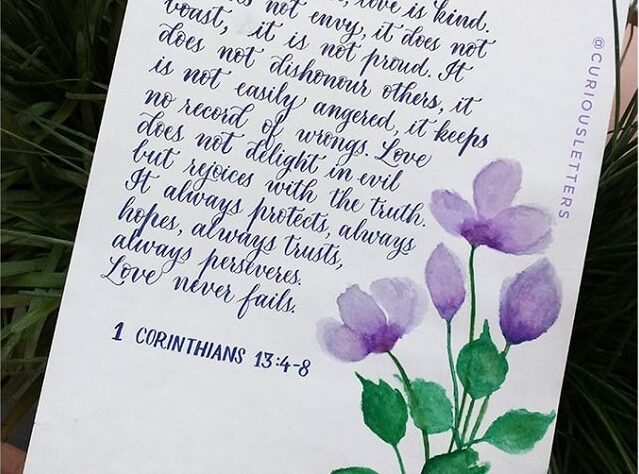 love is kind.
not envy, it does not
boast, it is not proud. It
does not dishonour others, it
is not easily angered, it keeps
no record of wrongs. Love
does not delight in evil
but rejoices with the truth.
It always protects, always
hopes, always trusts,
always perseveres.
Love never fails.
1 CORINTHIANS 13:4-8
@CURIOUSLETTERS